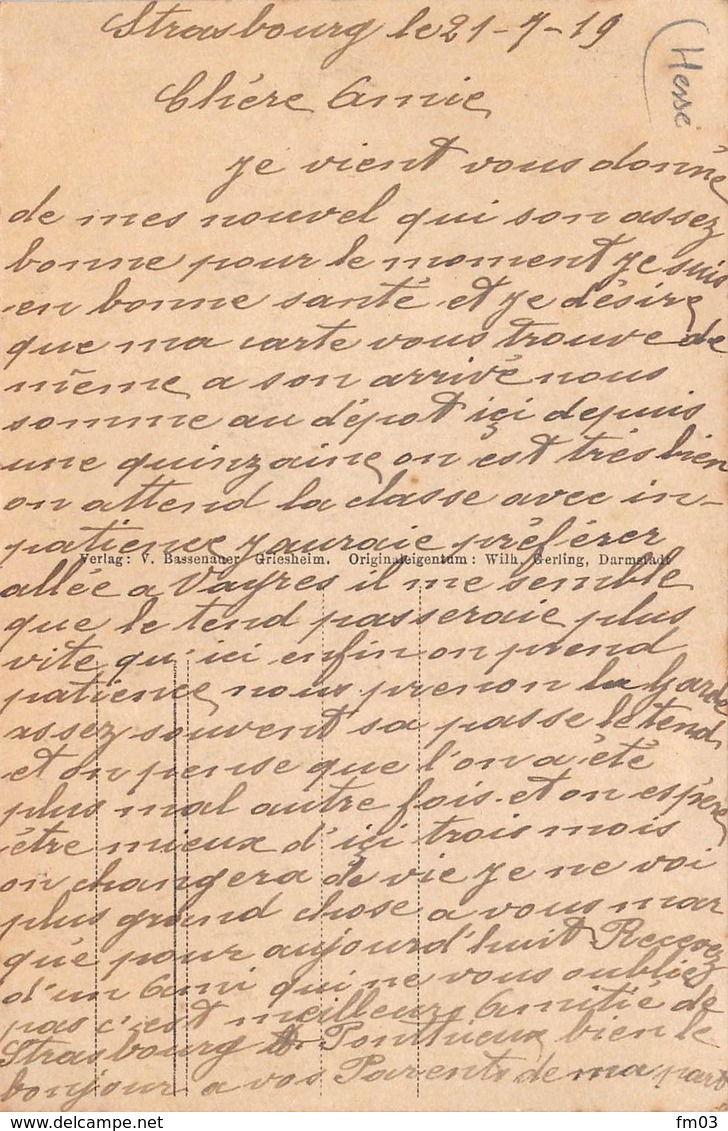 Strasbourg le 21-7-19
(Hesse
Chére Amie
Je vient vous donné
de mes nouvel qui son assez
bonne pour le moment je suis
en bonne santé et je désire
que ma carte vous trouve de
même a son arrivé nous
somme au dépot içi depuis
une quinzaine on est trés bien
on attend la classe avec in-
patience j'auraie préférer
Verlag: V. Bassenauer Griesheim. Originaleigentum: Wilh. Gerling, Darmstadt
allée a Vayres il me semble
que le tend passeraie plus
vite qu'ici enfin on prend
patience nous prenon la garde
assez souvent sa passe le tend
et on pense que l'on a été
plus mal autre fois et on espére
être mieux d'içi trois mois
on changera de vie Je ne voi
plus grand chose a vous mar
qué pour aujourd'huit Recevez
d'un Ami qui ne vous oublies
pas c'est meilleur Amitié de
Strasbourg Ponthieux bien le
bonjour a vos Parents de ma part
fm03